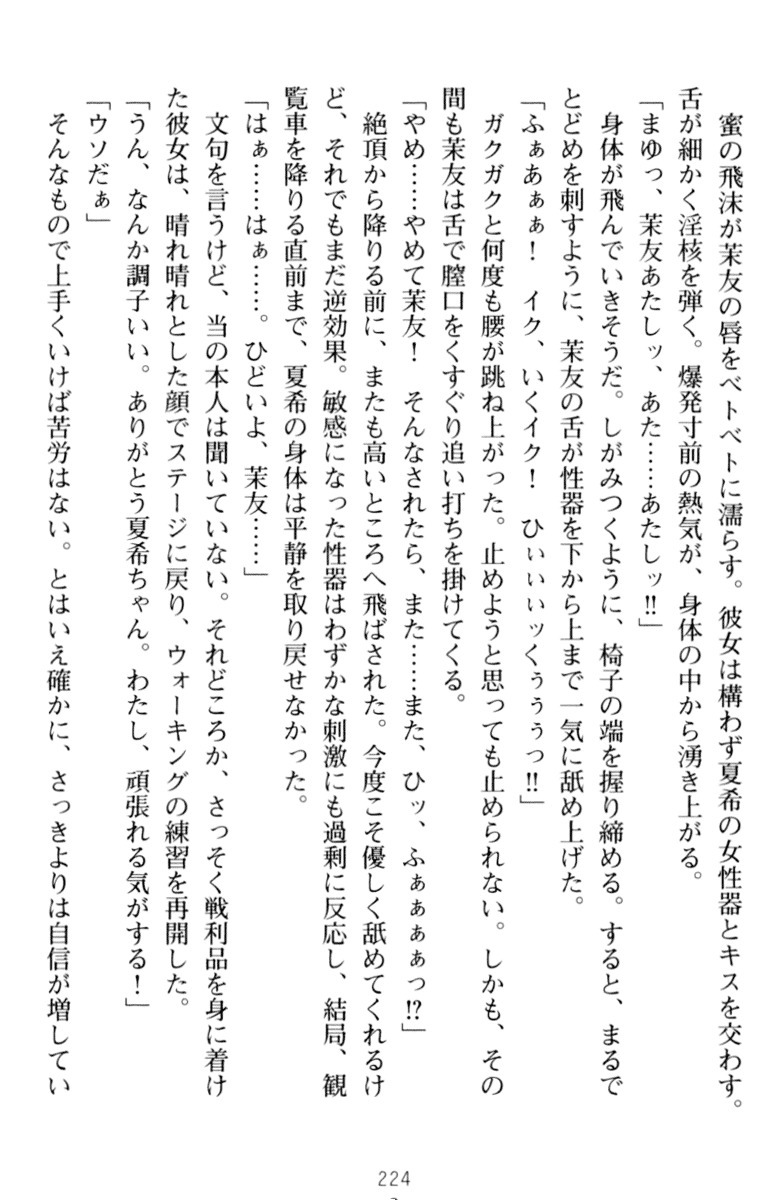 蜜の飛沫が茉友の唇をベトベトに濡らす。彼女は構わず夏希の女性器とキスを交わす。
舌が細かく淫核を弾く。爆発寸前の熱気が、身体の中から湧き上がる。
「まゆっ、茉友あたしッ、あた……あたしッ!!」
身体が飛んでいきそうだ。しがみつくように、椅子の端を握り締める。すると、まるで
とどめを刺すように、茉友の舌が性器を下から上まで一気に舐め上げた。
「ふぁあぁぁ！　イク、いくイク！　ひぃぃぃッくぅぅぅっ!!」
ガクガクと何度も腰が跳ね上がった。止めようと思っても止められない。しかも、その
間も茉友は舌で膣口をくすぐり追い打ちを掛けてくる。
「やめ……やめて茉友！　そんなされたら、また……また、ひッ、ふぁぁぁぁっ!?」
絶頂から降りる前に、またも高いところへ飛ばされた。今度こそ優しく舐めてくれるけ
ど、それでもまだ逆効果。敏感になった性器はわずかな刺激にも過剰に反応し、結局、観
覧車を降りる直前まで、夏希の身体は平静を取り戻せなかった。
「はぁ……はぁ……。ひどいよ、茉友……」
文句を言うけど、当の本人は聞いていない。それどころか、さっそく戦利品を身に着け
た彼女は、晴れ晴れとした顔でステージに戻り、ウォーキングの練習を再開した。
「うん、なんか調子いい。ありがとう夏希ちゃん。わたし、頑張れる気がする！」
「ウソだぁ」
そんなもので上手くいけば苦労はない。とはいえ確かに、さっきよりは自信が増してい
224